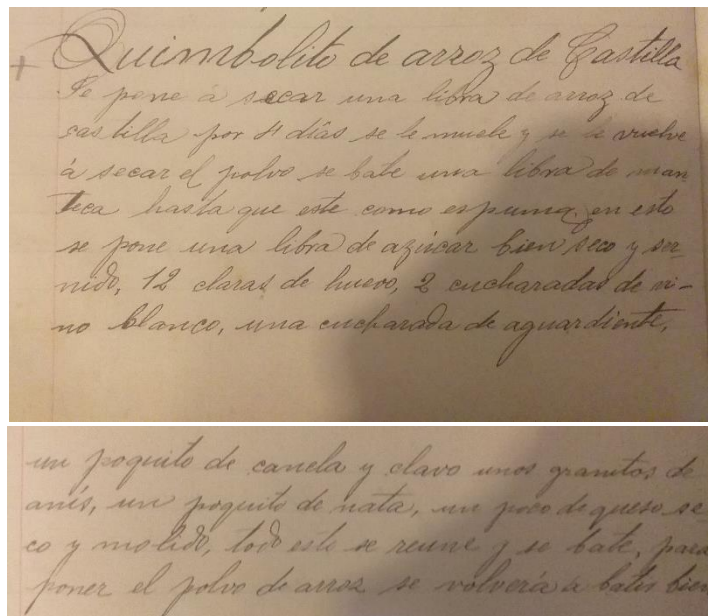 Quimbolito de arroz de Castilla
Se pone á secar una libra de arroz de
castilla por 4 días se le muele y se le vuelve
á secar el polvo se bate una libra de man
teca hasta que este como espuma, en esto
se pone una libra de azúcar bien seco y ser-
nido, 12 claras de huevo, 2 cucharadas de vi-
no blanco, una cucharada de aguardiente,
un poquito de canela y clavo unos granitos de
anís, un poquito de nata, un poco de queso se
co y molido, todo esto se reune y se bate, para
poner el polvo de arroz se volvería a batir bien